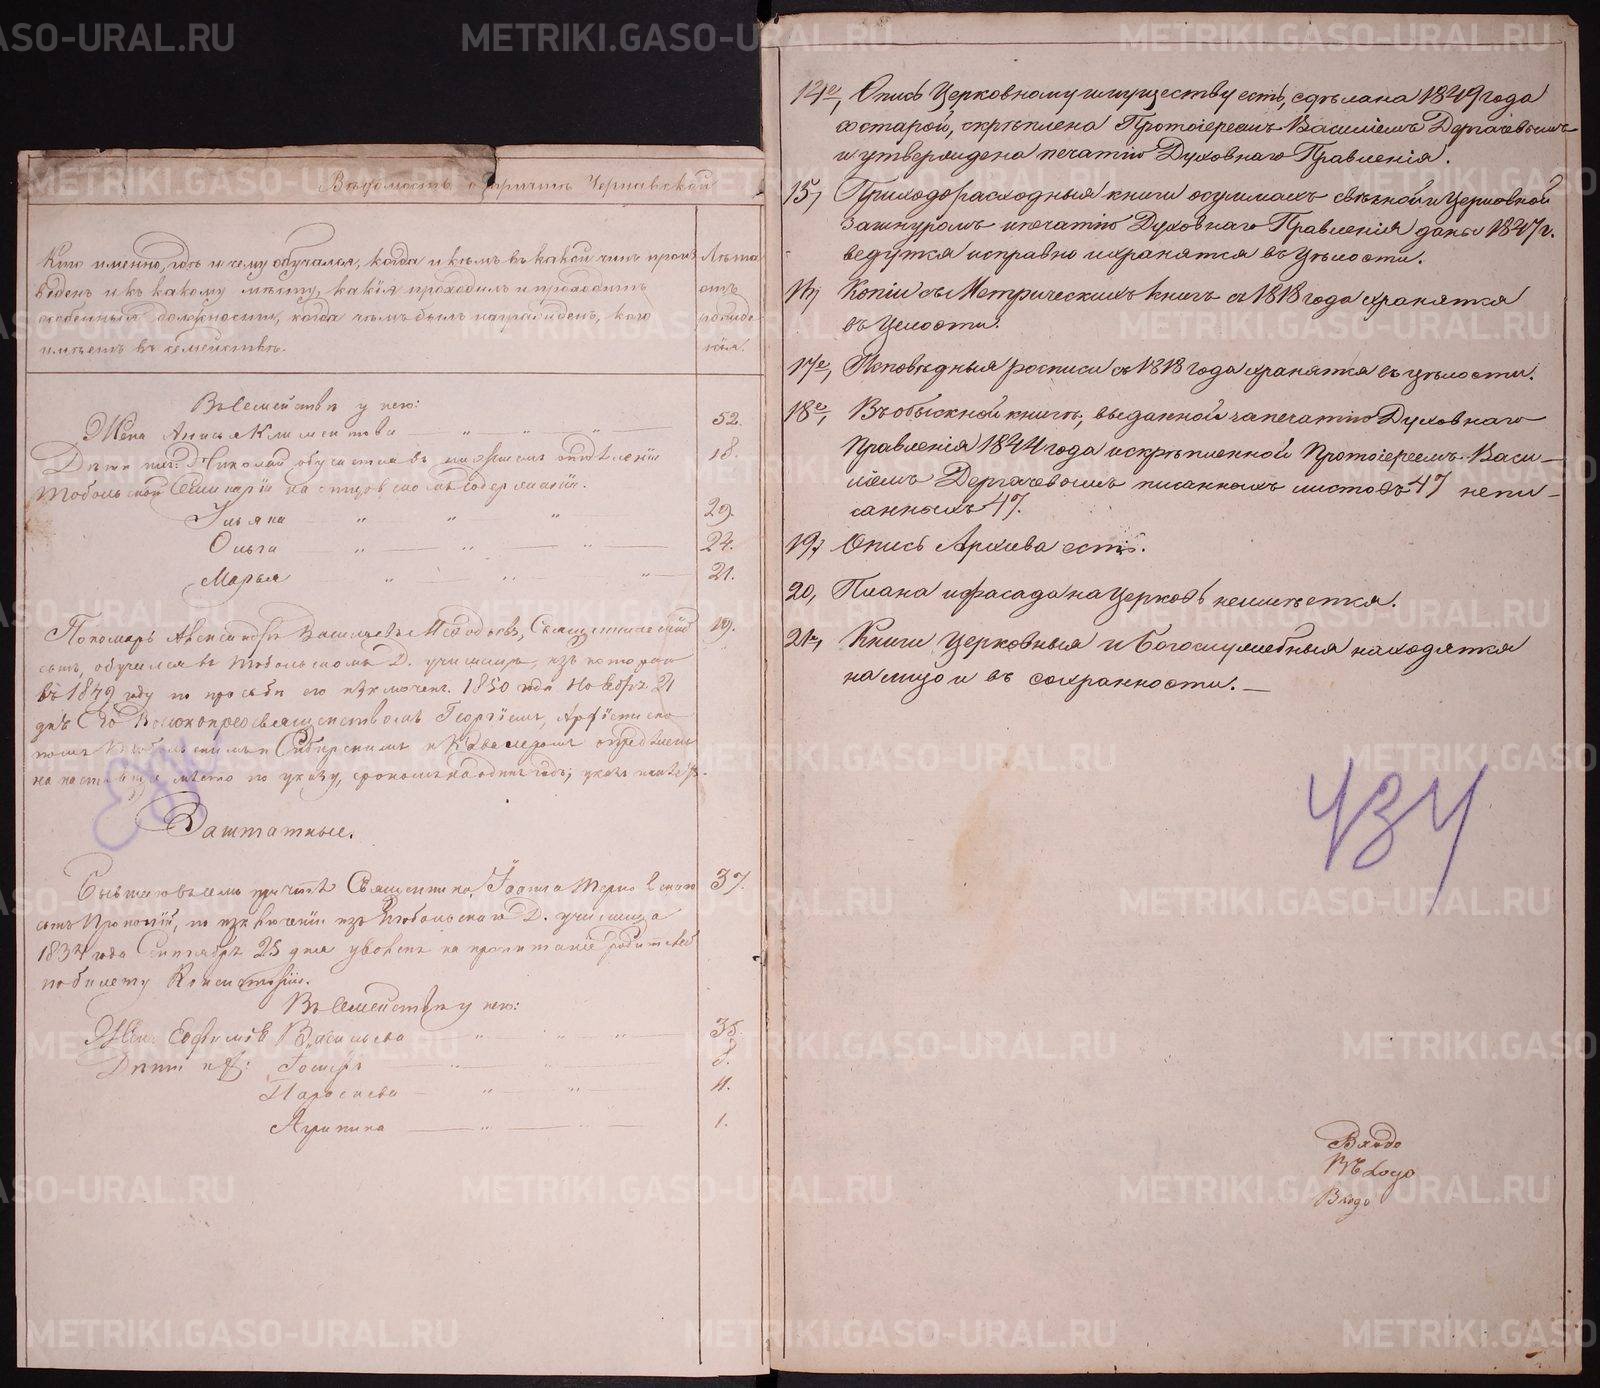 Вѣдомость о причтѣ Чернавской
Кто именно, гдѣ и чему обучался, когда и кѣмъ въ какой чинъ произ-
веденъ и къ какому мѣсту, какія проходилъ и проходитъ
особенныя должности, когда чѣмъ былъ награжденъ, кого
имѣетъ въ семействѣ.
Лѣта
отъ
рожде-
нія.
Въ семействѣ у него:
Жена Анисья Климентова 52.
Дѣти ихъ: Николай обучается въ низшемъ отдѣленіи 18.
Тобольской Семинаріи на отцовскомъ содержаніи.
Ульяна 29.
Ольга 24.
Марья 21.
Пономарь Александръ Васильевъ Меѳодьевъ, Священнический 19.
сынъ, обучался въ Тобольскомъ Д. училищѣ, изъ котораго
въ 1849 году по просьбѣ его исключенъ. 1850 года Ноября 21
дня Его Высокопреосвященствомъ Георгіемъ, Архіепископомъ
Тобольскимъ и Сибирскимъ и Кавалеромъ опредѣленъ
на настоящее мѣсто по указу, срокомъ на одинъ годъ; указъ имѣетъ.
Заштатные.
Бывшаго въ семъ причтѣ Священника Іоанна 37.
сынъ Прокопій, по исключеніи изъ Тобольскаго Д. училища
1834 года Сентября 25 дня уволенъ на пропитаніе родителей
по билету Консисторіи.
Въ Семействѣ у него:
Жена Евфимія Васильева 35.
Дѣти ихъ: 8.
Параскева 4.
Агрипина 1.
14е, Опись Церковному имуществу есть, сдѣлана 1849 года
со старой, скрѣплена Протоіереемъ Василіемъ Дергачевымъ
и утверждена печатію Духовнаго Правленія.
15, Приходорасходныя книги о суммахъ свѣчной и Церковной
за шнуромъ и печатію Духовнаго Правленія даны 1847 г.
ведутся исправно и хранятся въ цѣлости.
16, Копіи съ Метрическихъ книгъ съ 1818 года хранятся
въ целости.
17е, Исповѣдныя росписи съ 1818 года хранятся въ цѣлости.
18е, Въ обыскной книгѣ, выданной за печатію Духовнаго
Правленія 1844 года и скрѣпленной Протоіереемъ Васи-
ліемъ Дергачевымъ писанныхъ листовъ 47 непи-
санныхъ 47.
19, Опись Архива есть.
20, Плана и фасада на Церковь неимѣется.
21е, Книги церковныя и богослужебныя находятся
на лицо и въ сохранности.
434
METRIKI.GASO-URAL.RU